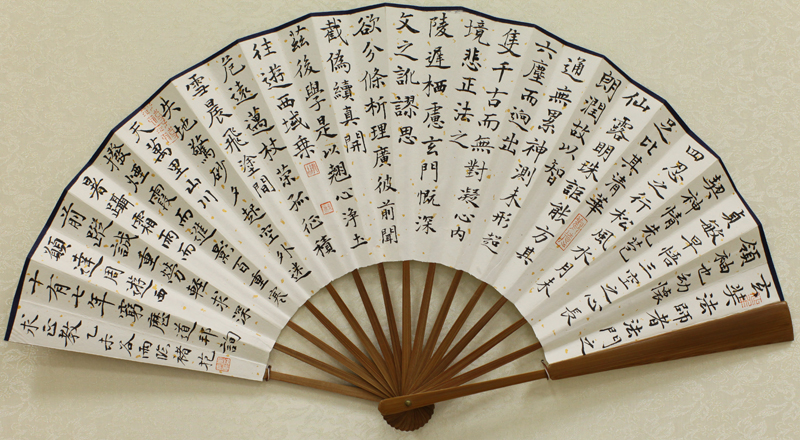 玄奘法師者法門之
領袖也幼懷
貞敏早悟三空之心長
契神情先苞
四忍之行松風水月未
足比其清華
仙露明珠詎能方其
朗潤故以智
通無累神測未形超
六塵而迥出
隻千古而無對凝心內
境悲正法之
陵遲栖慮玄門慨深
文之訛謬思
欲分條析理廣彼前聞
截偽續真開
茲後學是以翹心淨土
往遊西域乘
危遠邁杖策孤征積
雪晨飛塗間
失地驚砂夕起空外迷
天萬里山川
撥煙霞而進影百重寒
暑躡霜雨而
前蹤誠重勞輕求深
願達周遊西
十有七年窮歷道邦詢
求正教乙未谷雨臨褚